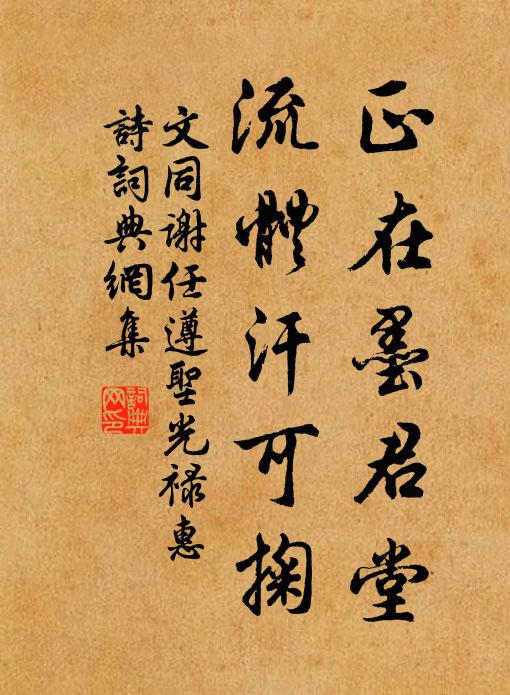 正在墨君堂
流體汗可掬
文同谢任遵聖光禄惠
詩詞典網集
詞典网印